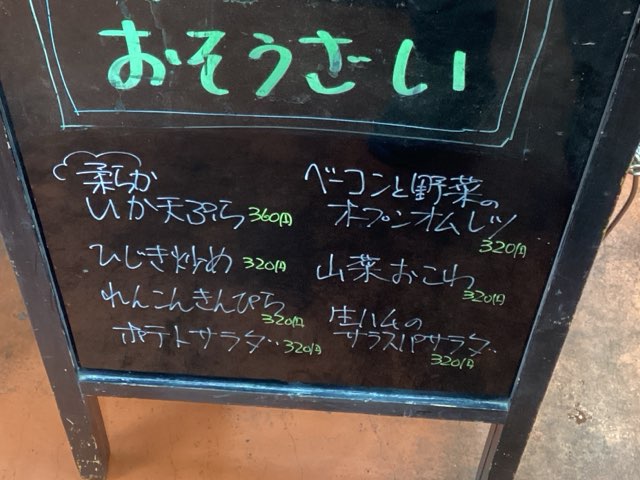 おそうざい
柔らか
いか天ぷら 360円
ひじき炒め 320円
れんこんきんぴら
320円
ポテトサラダ 320円
ベーコンと野菜の
オープンオムレツ
320円
山菜おこわ
320円
生ハムの
サラスパサラダ
320円